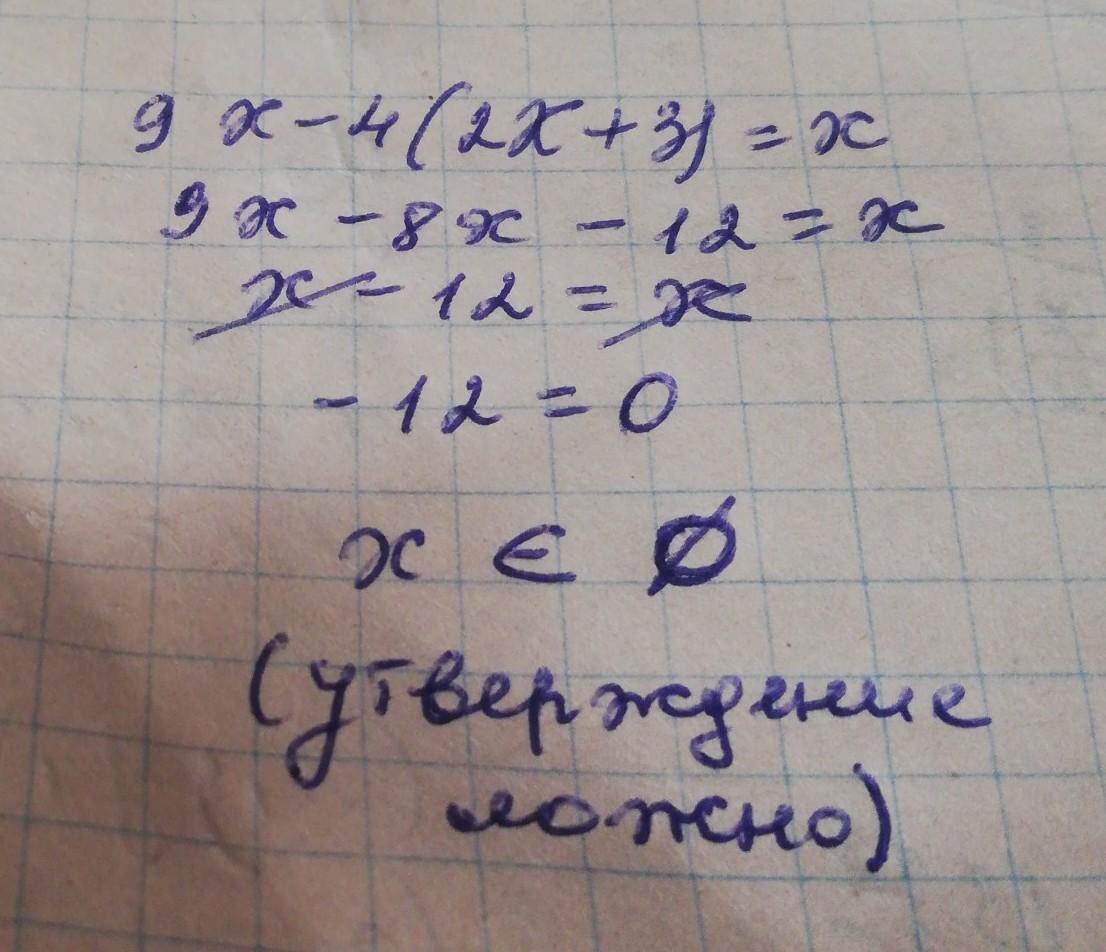 9x-4(2x+3)=x
9x-8x-12=x
x-12=x
-12=0
x ∈ Ø
(утверждение
ложно)